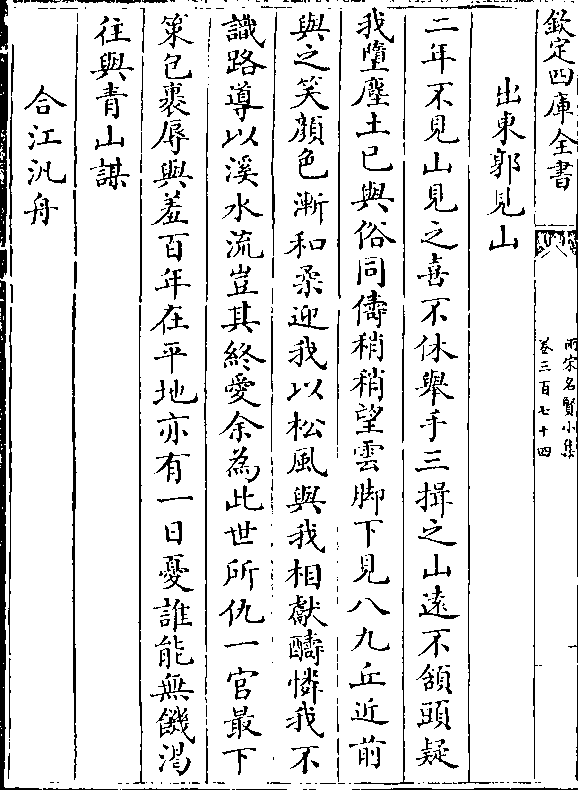 欽定四庫全書
兩宋名賢小集
卷三百七十四
出東郭見山
二年不見山見之喜不休舉手三揖之山遠不頷頭疑
我墮塵土已與俗同儔稍稍望雲脚下見八九丘近前
與之笑顔色漸和柔迎我以松風與我相獻醻憐我不
識路導以溪水流豈其終愛余為此世所仇一官最下
策包裹辱與羞百年在平地亦有一日憂誰能無饑渴
往與青山謀
合江汎舟